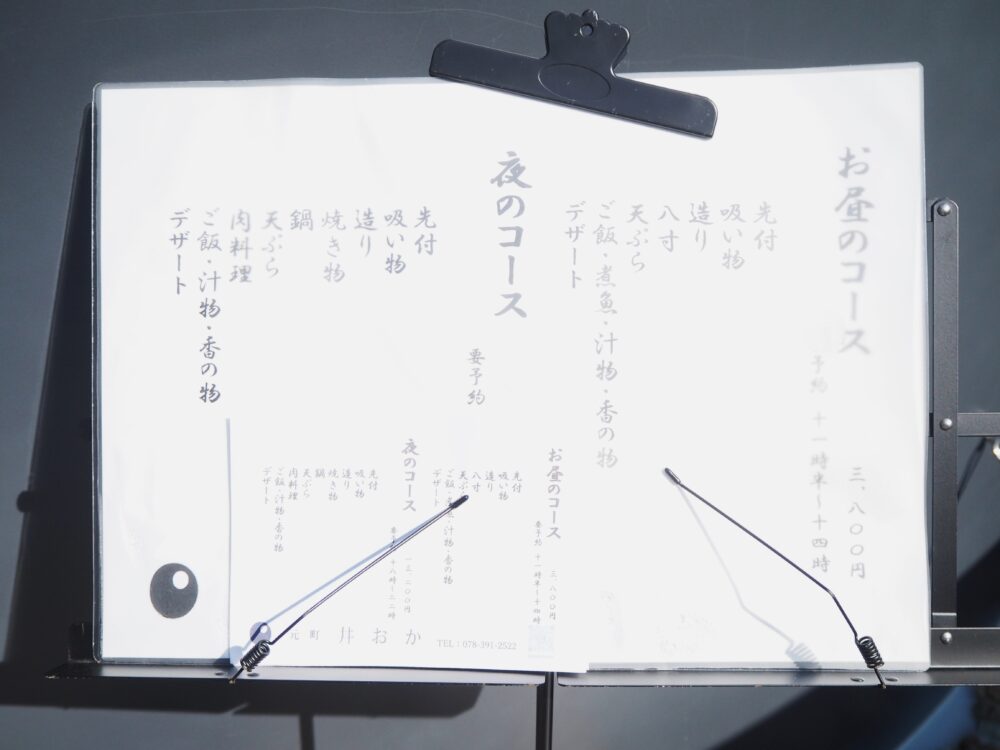 お昼のコース
三、八〇〇円
予約 十一時半～十四時
先付
吸い物
造り
八寸
天ぷら
ご飯・煮魚・汁物・香の物
デザート
夜のコース
要予約
先付
吸い物
造り
焼き物
鍋
天ぷら
肉料理
ご飯・汁物・香の物
デザート
お昼のコース
三、八〇〇円
要予約 十一時半～十四時
先付
吸い物
造り
八寸
天ぷら
ご飯・煮魚・汁物・香の物
デザート
夜のコース
一三、二〇〇円
十八時～二二時
先付
吸い物
造り
焼き物
鍋
天ぷら
肉料理
ご飯・汁物・香の物
デザート
元町 井おか
TEL：078-391-2522